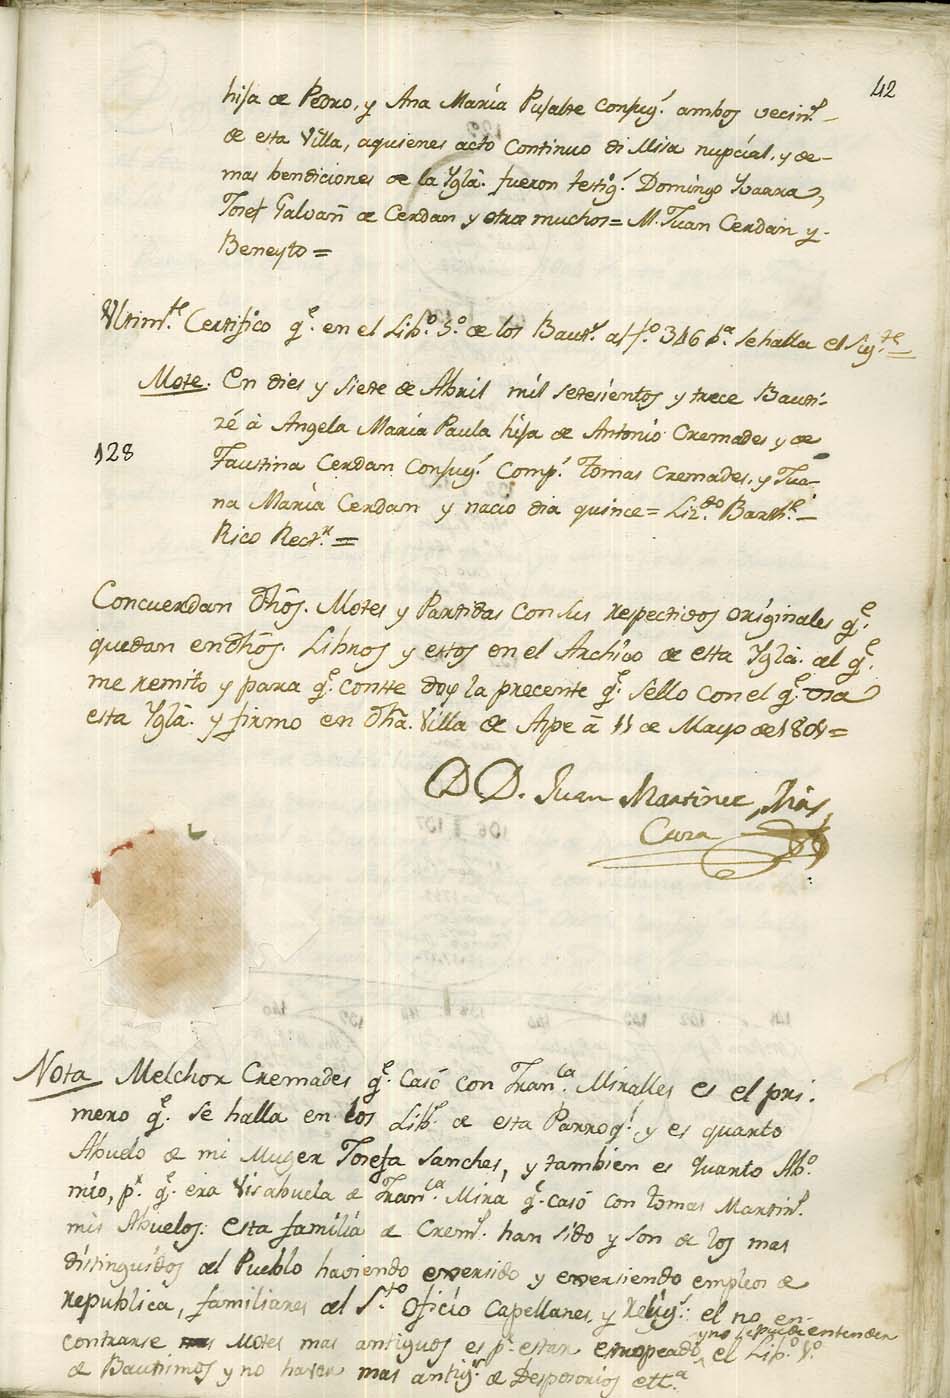 42
hija de Pedro, y Ana María Pujalte Conjug.s ambos vecin.s
de esta Villa, aquienes acto continuo di Misa nupcial, y de-
mas bendiciones de la Yglã. fueron testig.s Domingo Ybarra,
Josef Galvañ de Cerdan y otros muchos = M. Juan Cerdan y
Beneyto =
Ultim.te Certifico q.e en el Lib.o 3.o de los Baut.s al f.o 346 b.a se halla el sig.te =
Mote. En dies y siete de Abril mil setesientos y trece Bauti-
zé à Angela María Paula hija de Antonio Cremades y de
128
Faustina Cerdan Conjug.s Comp.s Tomas Cremades, y Jua-
na María Cerdan y nacio dia quince = Liz.do Barth.e
Rico Rect.r =
Concuerdan dhõs. Motes y Partidas con sus respectivos originales q.e
quedan en dhõs. Libros y estos en el Archivo de esta Yglã. al q.e
me remito y para q.e conste doy la precente q.e sello con el q.e usa
esta Yglã. y firmo en dhã. Villa de Aspe ã 11 de Mayo de 1801 =
D D. Juan Martinez
Cura
Nota Melchor Cremades q.e Casó con Fran.ca Miralles es el pri-
mero q.e se halla en los Lib.s de esta Parroq.l y es quarto
Abuelo de mi Muger Josefa Sanches, y tambien es quarto Ab.o
mio, p.r q.e era Visabuela de Fran.ca Mira q.e casó con Tomas Martin.s
mis Abuelos: esta familia de Crem.s han sido y son de los mas
distinguidos del Pueblo haviendo exersido y exersiendo empleos de
republica, familiares del S.to Oficio Capellanes, y Relig.s: el no en-
contrarse Motes mas antiguos es p.r estar estropeado y no se puede entender el Lib.o 1.o
de Bautismos y no haver mas antig.s de Desposorios ett.a